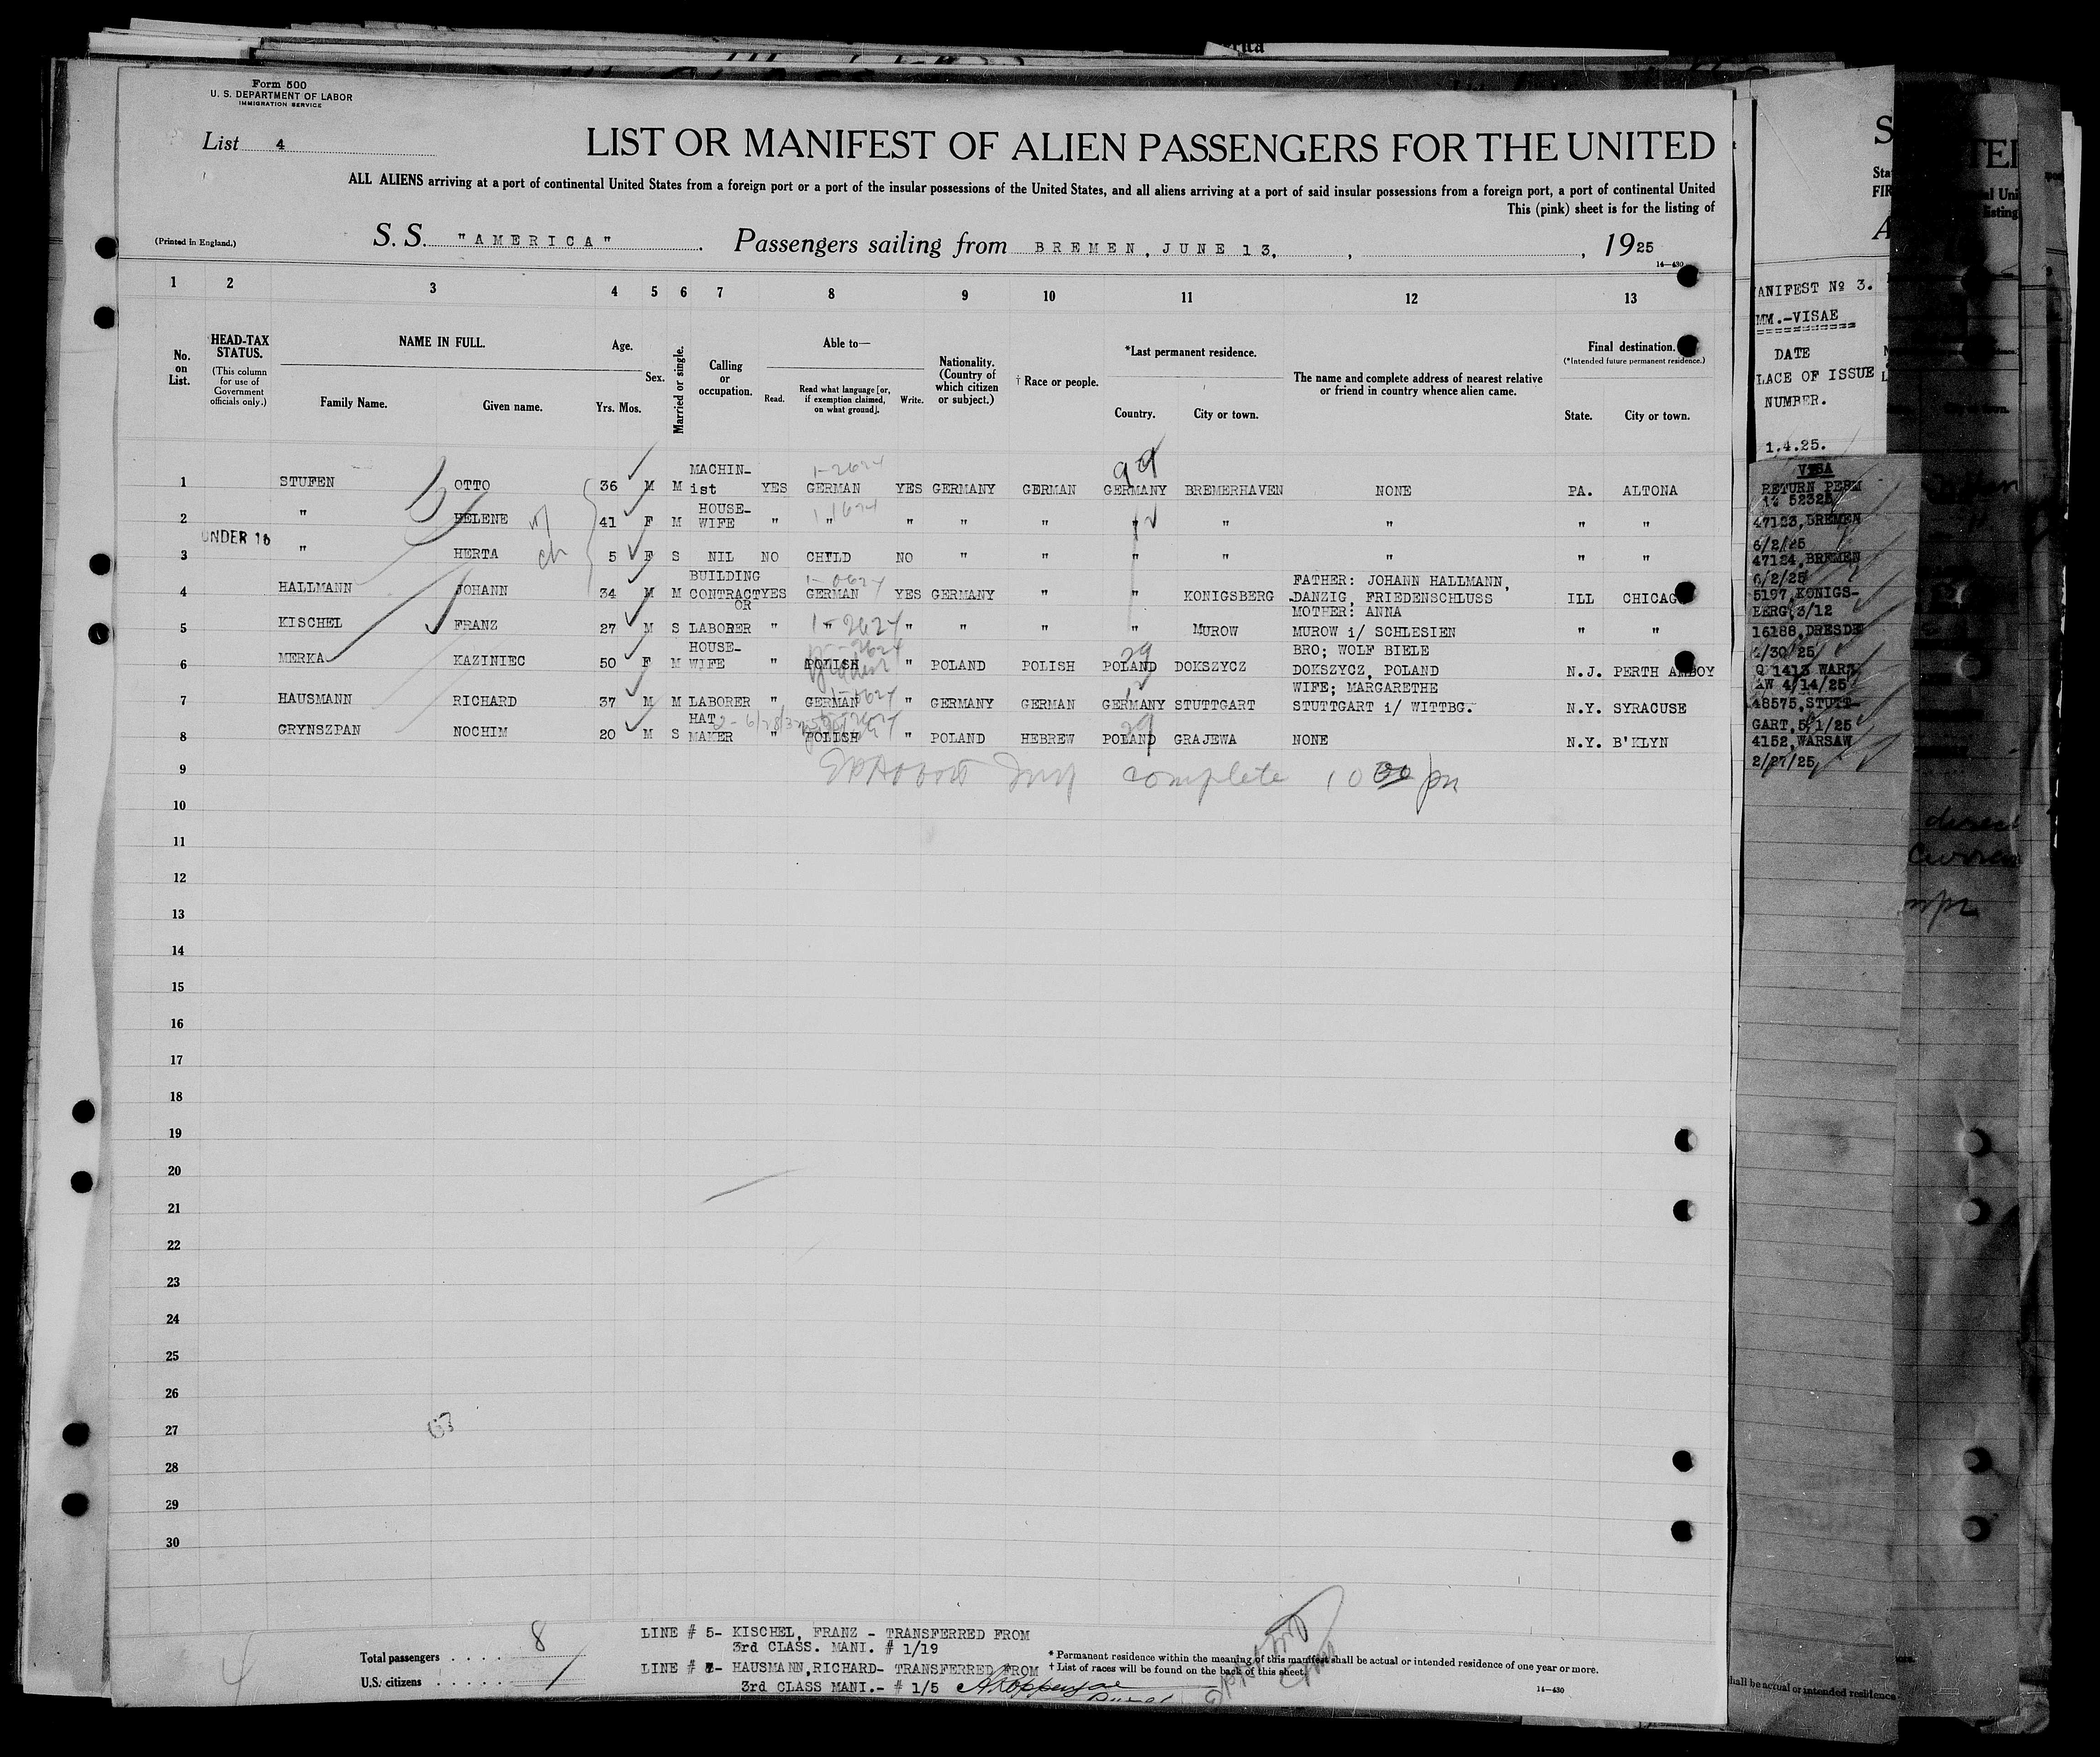 Form 500
U. S. DEPARTMENT OF LABOR
IMMIGRATION SERVICE
List 4
LIST OR MANIFEST OF ALIEN PASSENGERS FOR THE UNITED
ALL ALIENS arriving at a port of continental United States from a foreign port or a port of the insular possessions of the United States, and all aliens arriving at a port of said insular possessions from a foreign port, a port of continental United
This (pink) sheet is for the listing of
(Printed in England.) S. S. "AMERICA" . Passengers sailing from BREMEN, JUNE 13, , , 1925
14—430
1 2 3 4 5 6 7 8 9 10 11 12 13
No. on List.
HEAD-TAX STATUS.
(This column for use of Government officials only.)
NAME IN FULL.
Family Name. Given name.
Age.
Yrs. Mos.
Sex.
Married or single.
Calling or occupation.
Able to—
Read.
Read what language [or, if exemption claimed, on what ground].
Write.
Nationality. (Country of which citizen or subject.)
† Race or people.
*Last permanent residence.
Country. City or town.
The name and complete address of nearest relative or friend in country whence alien came.
Final destination.
(*Intended future permanent residence.)
State. City or town.
1 STUFEN OTTO 36 M M MACHIN-ist YES GERMAN YES GERMANY GERMAN GERMANY BREMERHAVEN NONE PA. ALTONA
2 " HELENE wf 41 F M HOUSE-WIFE " " " " " " " " " "
UNDER 16
3 " HERTA ch 5 F S NIL NO CHILD NO " " " " " " "
4 HALLMANN JOHANN 34 M M BUILDING CONTRACTOR YES GERMAN YES GERMANY " " KONIGSBERG FATHER: JOHANN HALLMANN, DANZIG, FRIEDENSCHLUSS ILL CHICAGO
5 KISCHEL FRANZ 27 M S LABORER " " " " " " MUROW MOTHER: ANNA MUROW i/ SCHLESIEN " "
6 MERKA KAZINIEC 50 F M HOUSE-WIFE " POLISH " POLAND POLISH POLAND DOKSZYCZ BRO; WOLF BIELE DOKSZYCZ, POLAND N.J. PERTH AMBOY
7 HAUSMANN RICHARD 37 M M LABORER " GERMAN " GERMANY GERMAN GERMANY STUTTGART WIFE; MARGARETHE STUTTGART i/ WITTBG. N.Y. SYRACUSE
8 GRYNSZPAN NOCHIM 20 M S HAT MAKER " POLISH " POLAND HEBREW POLAND GRAJEWA NONE N.Y. B'KLYN
9 complete 10 00 pm
10
11
12
13
14
15
16
17
18
19
20
21
22
23
24
25
26
27
28
29
30
Total passengers 8
U.S. citizens
LINE # 5- KISCHEL, FRANZ - TRANSFERRED FROM
3rd CLASS. MANI. # 1/19
LINE # 7- HAUSMANN, RICHARD- TRANSFERRED FROM
3rd CLASS MANI.- # 1/5
* Permanent residence within the meaning of this manifest shall be actual or intended residence of one year or more.
† List of races will be found on the back of this sheet.
14—430
ANIFEST № 3.
MM.-VISAE
DATE
LACE OF ISSUE
NUMBER.
1.4.25.
VISA
RETURN PERM
47123, BREMEN
6/2/25
47124, BREMEN
6/2/25
5197, KONIGS-
BERG, 3/12
16188, DRESDE
/30/25
1413 WARS
AW 4/14/25
48575, STUTT-
GART, 5/1/25
4152, WARSAW
2/27/25
hall be actual or intended residence